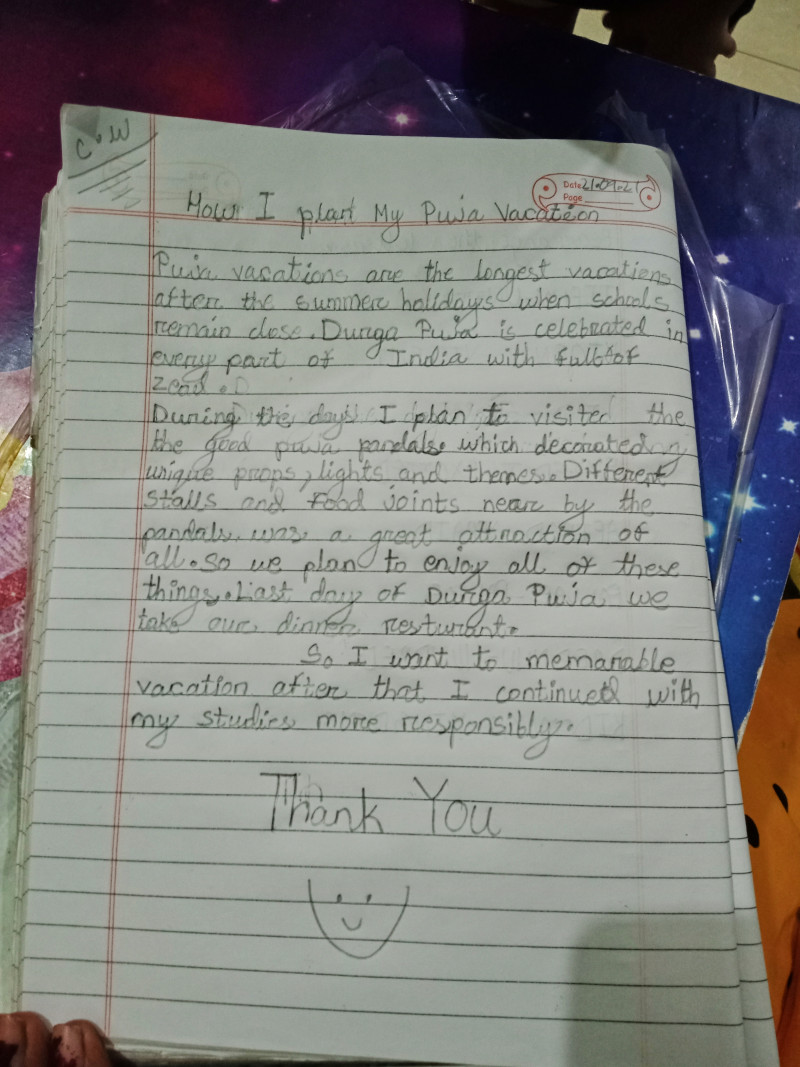 C.W
Date 21.09.21
Page
How I plan My Puja Vacation
Puja vacations are the longest vacations
after the summer holidays when schools
remain close. Durga Puja is celebrated in
every part of India with full of
zeal.
During the days I plan to visited the
the good puja pandals. which decorated
unique props, lights and themes. Different
Stalls and Food joints near by the
pandals was a great attraction of
all. So we plan to enjoy all of these
things. Last day of Durga Puja we
take our dinner resturant.
So I want to memarable
vacation after that I continued with
my studies more responsibly.
Thank You